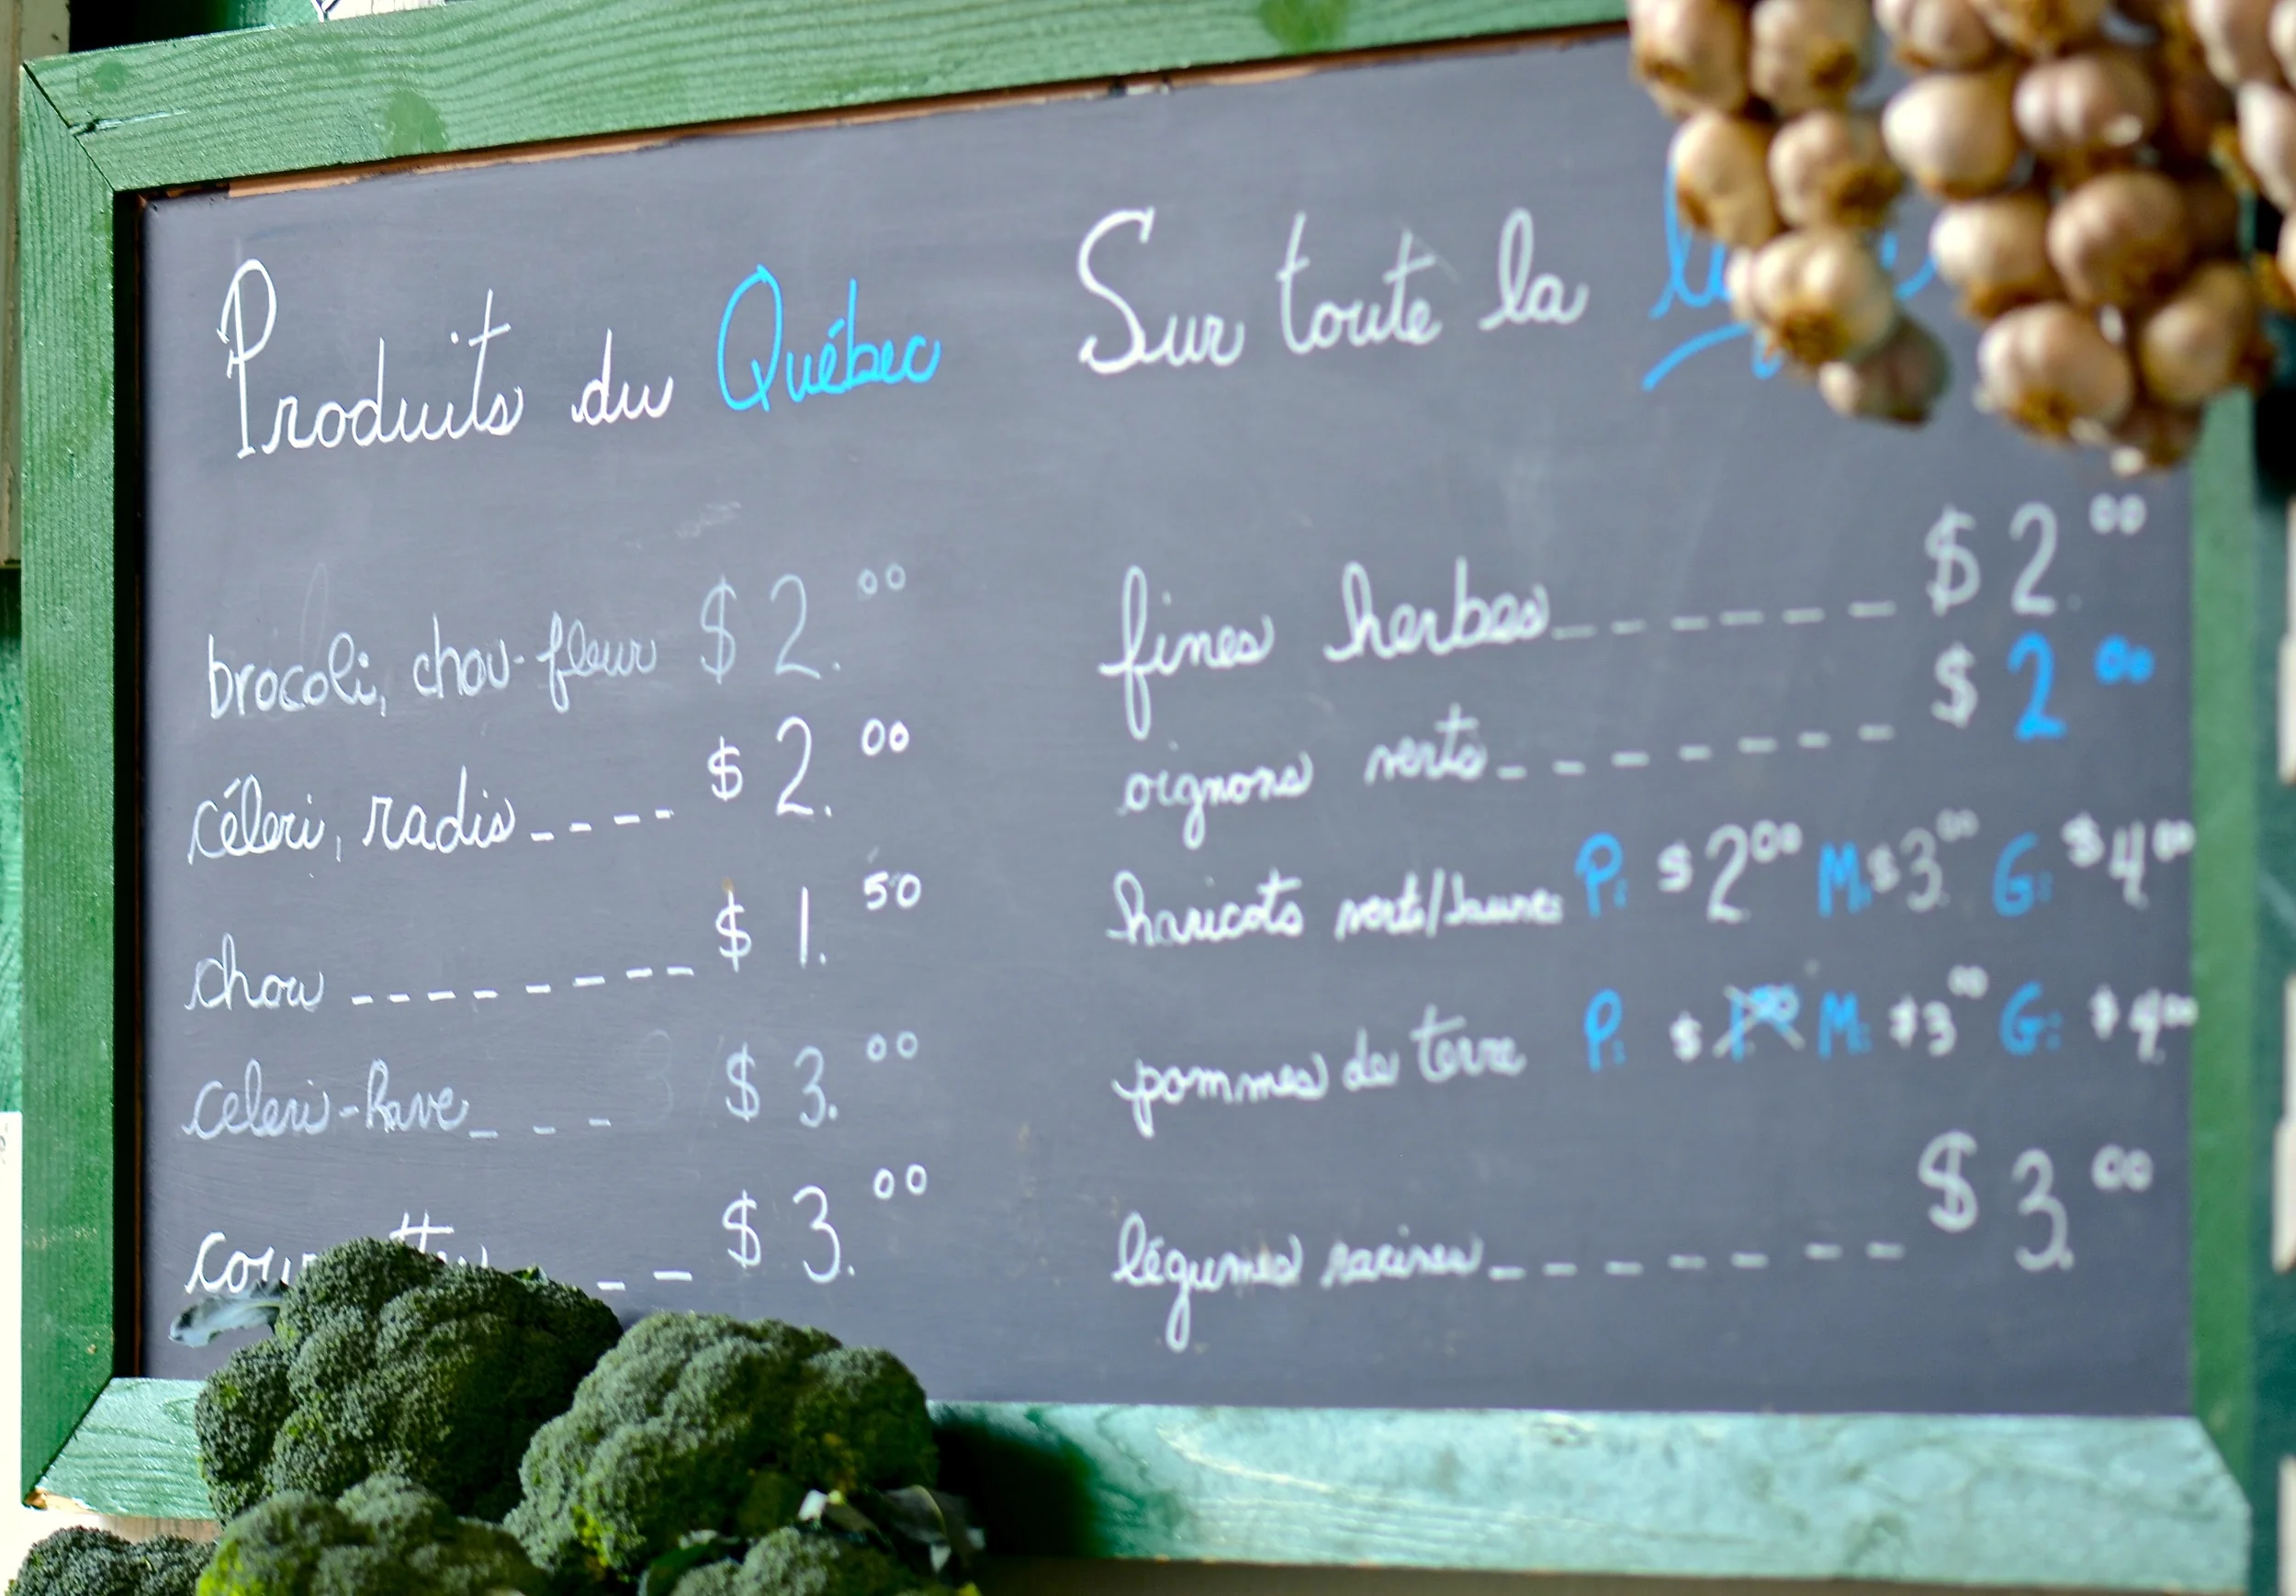 Produits du Québec
brocoli, chou-fleur $2.00
céleri, radis---- $2.00
chou -------- $1.50
celeri-Rave_ _ _ $3.00
_ _ $3.00
Sur toute la
fines herbes------ $2.00
oignons verts------- $2.00
haricots verts/Jaunes P: $2.00 M:$3.00 G: $4.00
pommes de terre P: $ M: $3.00 G: $4.00
légumes racines-------- $3.00